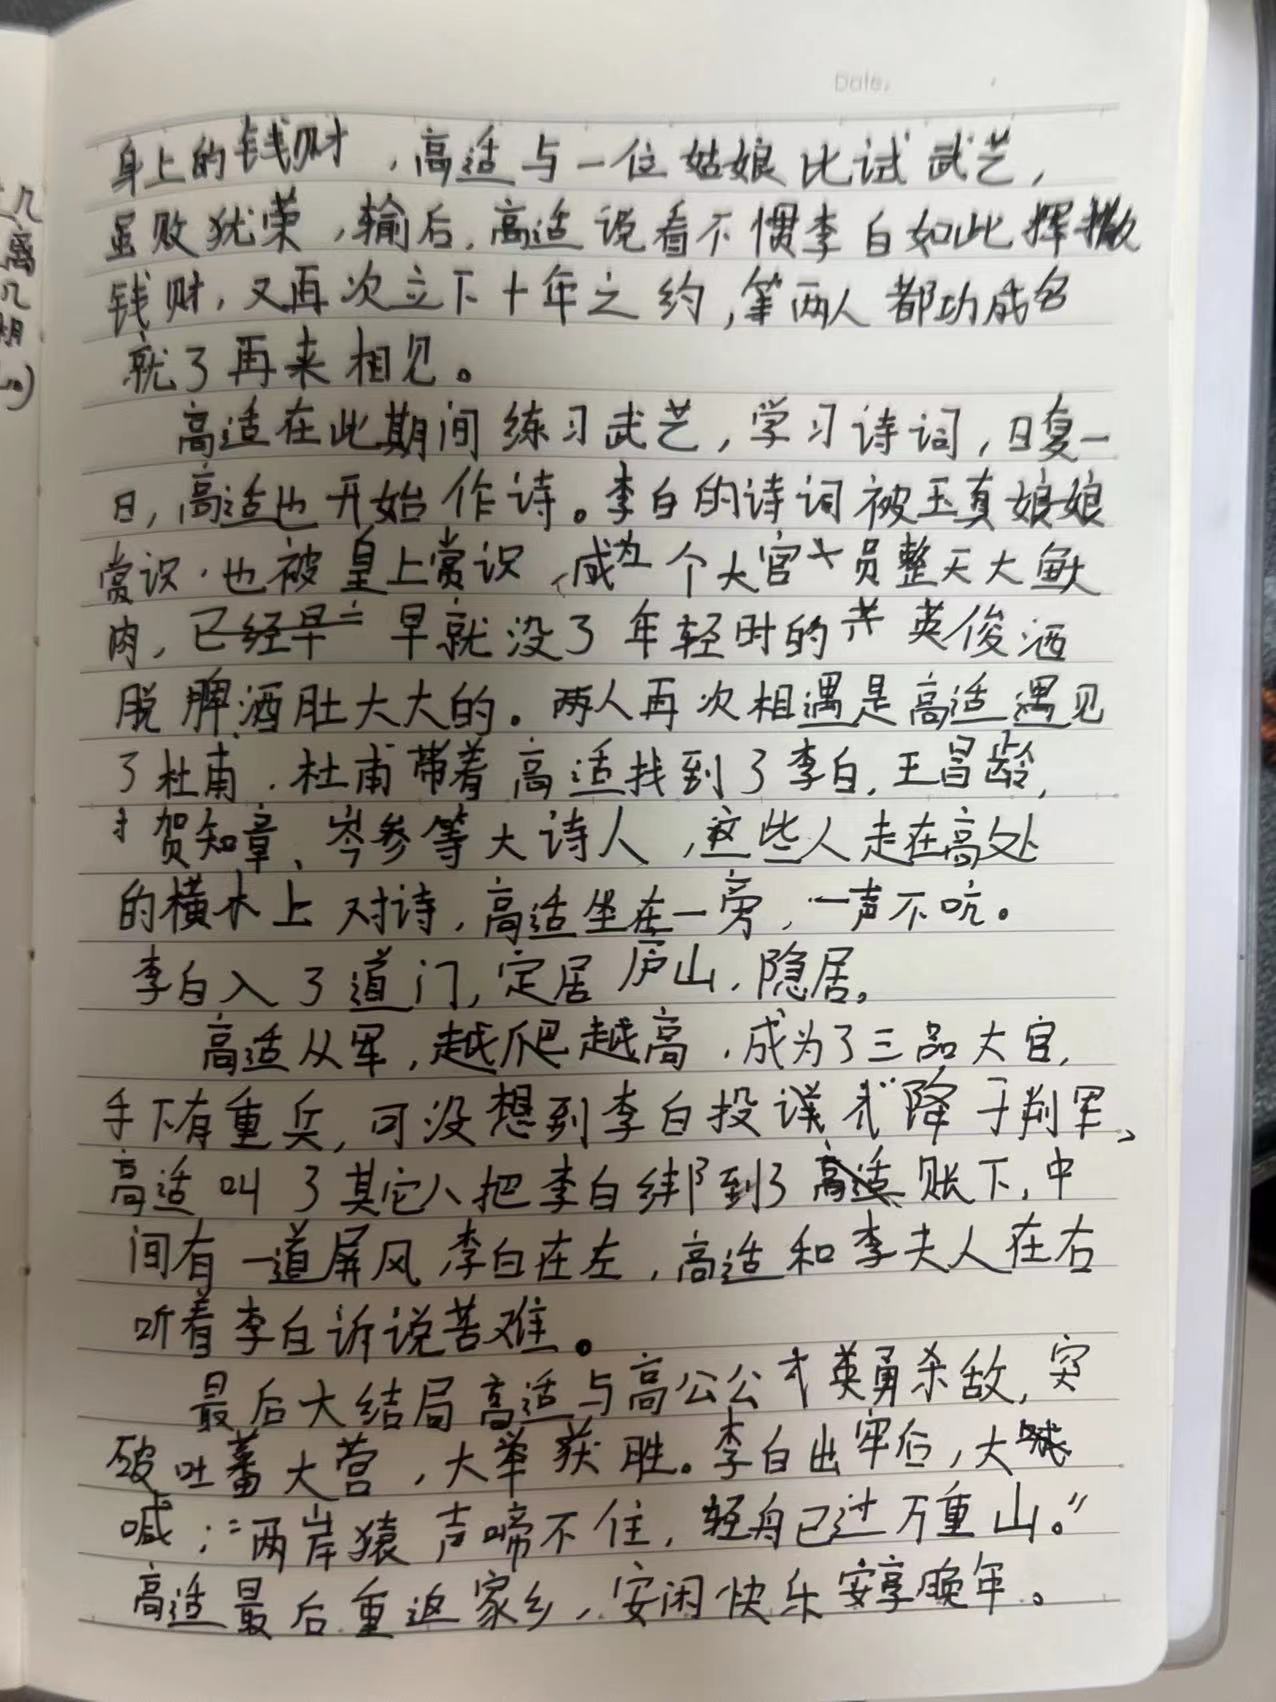 Date.
几
离
几
期
身上的钱财，高适与一位姑娘比试武艺，
虽败犹荣，输后，高适说看不惯李白如此挥撒
钱财，又再次立下十年之约，等两人都功成名
就了再来相见。
高适在此期间练习武艺，学习诗词，日复一
日，高适也开始作诗。李白的诗词被玉真娘娘
赏识，也被皇上赏识，成为个大官员整天大鱼大
肉，已经早早就没了年轻时的英俊洒
脱脾酒肚大大的。两人再次相遇是高适遇见
了杜甫，杜甫带着高适找到了李白，王昌龄，
贺知章、岑参等大诗人，这些人走在高处
的横木上对诗，高适坐在一旁，一声不吭。
李白入了道门，定居庐山，隐居。
高适从军，越爬越高，成为了三品大官，
手下有重兵，可没想到李白投降于判军，
高适叫了其它人把李白绑到了高适账下，中
间有一道屏风，李白在左，高适和李夫人在右
听着李白诉说苦难。
最后大结局高适与高公公英勇杀敌，突
破吐蕃大营，大举获胜。李白出牢后，大
喊；“两岸猿声啼不住，轻舟已过万重山。”
高适最后重返家乡，安闲快乐安享晚年。